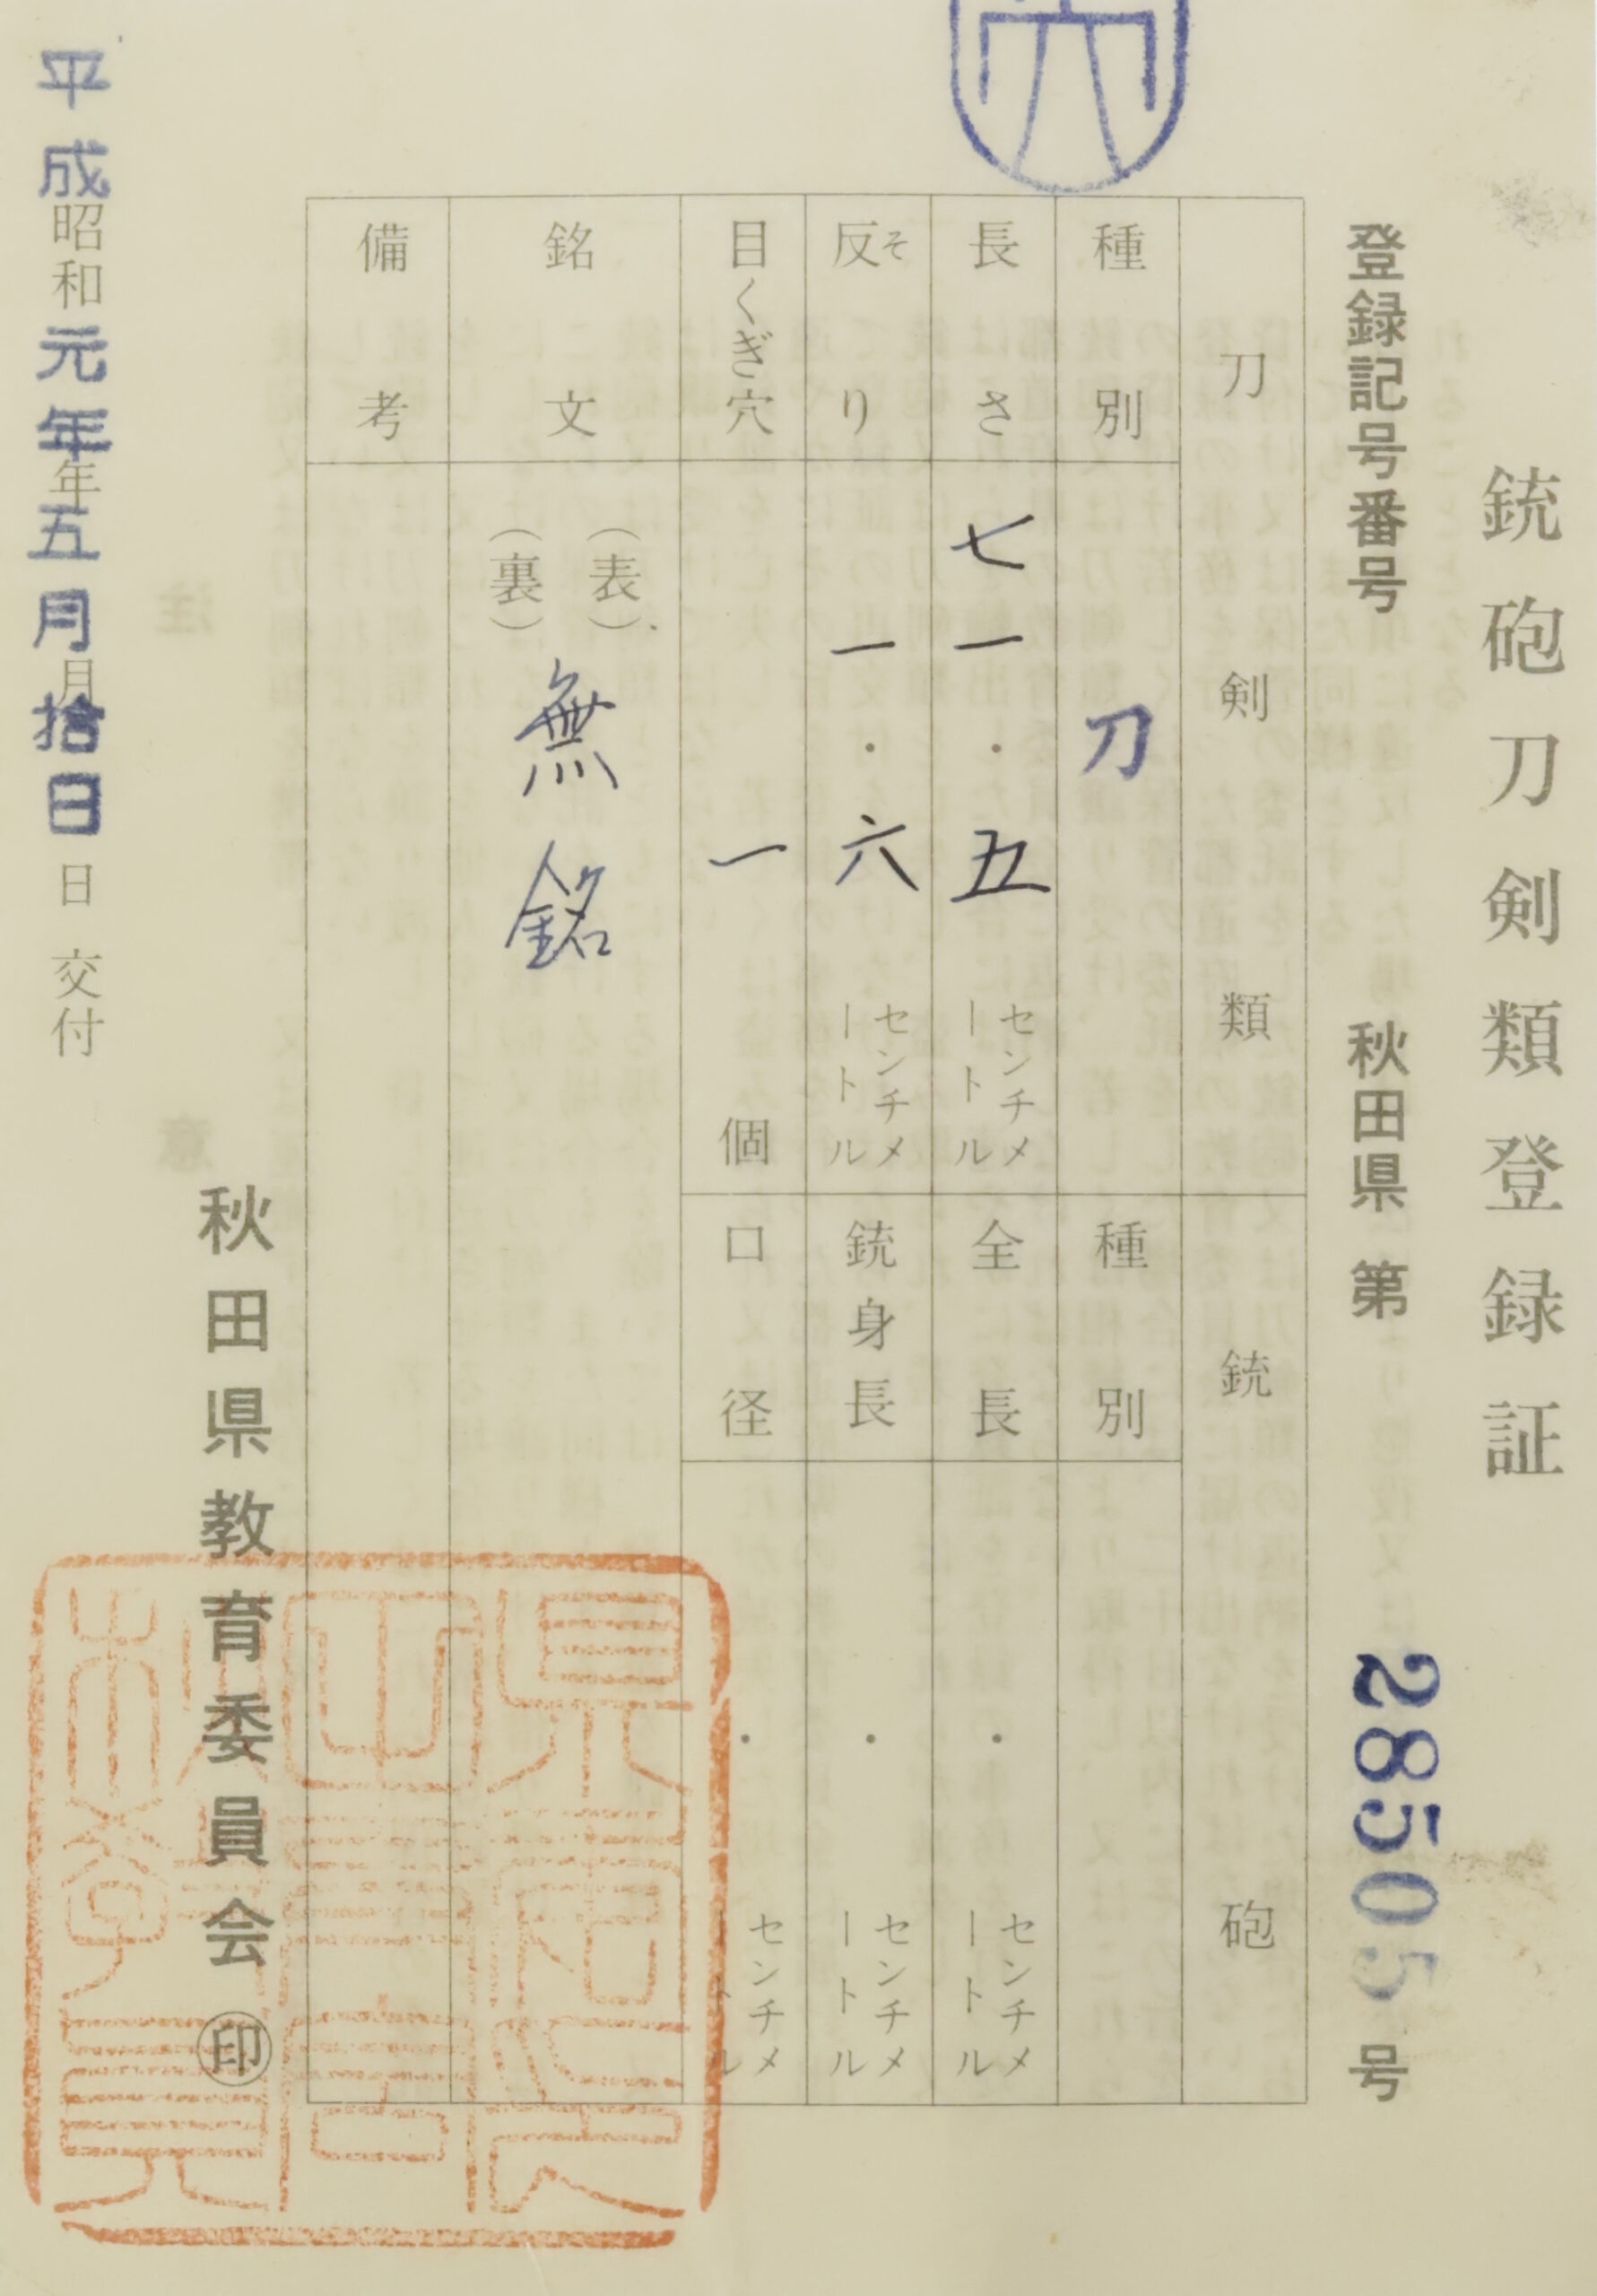 銃砲刀剣類登録証
登録記号番号 秋田県 第 28505 号
刀剣類 銃砲
種別 刀 種別
長さ 七一・五 センチメートル 全長 ・ センチメートル
反り そ 一・六 センチメートル 銃身長 ・ センチメートル
目くぎ穴 一 個 口径 ・ センチメートル
銘文 (表) (裏) 無銘
備考
秋田県教育委員会 ㊞
平成 昭和 元年 年 五月 月 拾日 日 交付